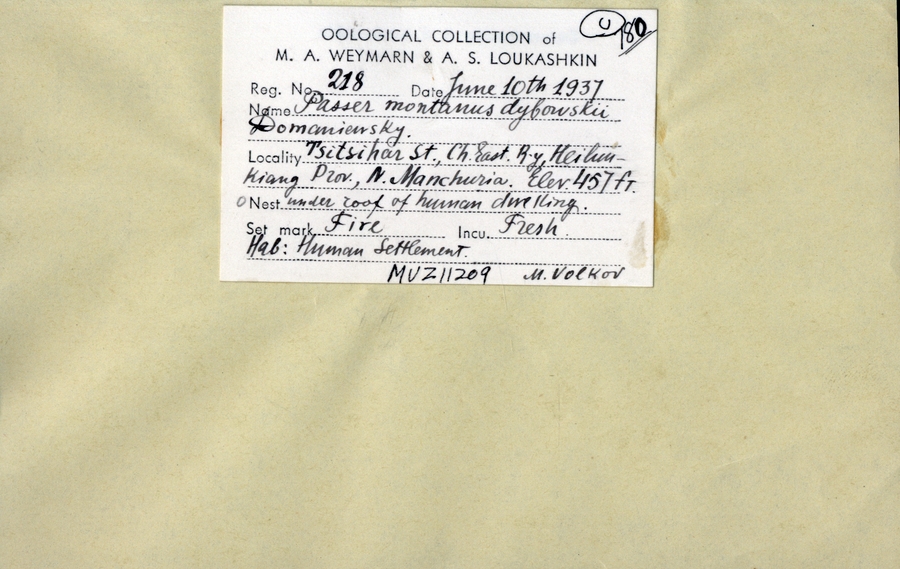 U 180
OOLOGICAL COLLECTION of
M. A. WEYMARN & A. S. LOUKASHKIN
Reg. No. 218 Date June 10th 1937
Name Passer montanus dybowskii
Domaniewsky.
Locality Tsitsihar St., Ch. East. R-y, Heilun-
kiang Prov., N. Manchuria. Elev. 457 ft.
Nest under roof of human dwelling.
Set mark Five Incu. Fresh.
Hab: Human Settlement.
MVZ11209 M. Volkov